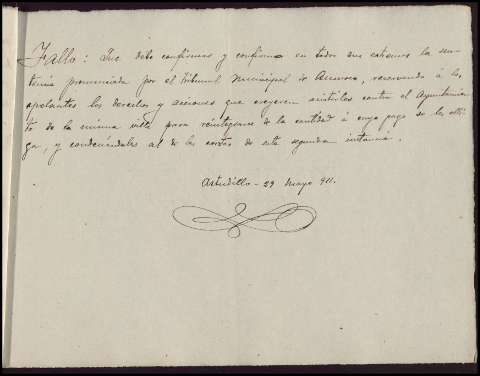 Fallo: Que debo confirmar y confirmo en todos sus extremos la sen-
tencia pronunciada por el Tribunal Municipal de reservando á los
apelantes los derechos y acciones que creyeren asistirles contra el Ayuntamien-
to de la misma villa para reintegrarse de la cantidad á cuyo pago se les obli-
ga, y condenándoles al de las costas de esta segunda instancia.
Astudillo - 29 Mayo 911.